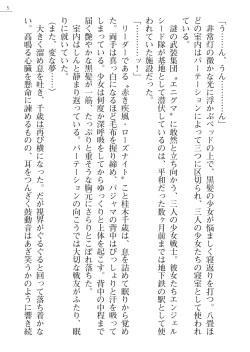 5
「うぅ……ん、うん………ッ」
　非常灯の微かな光に浮かぶベッドの上で、黒髪の少女が悩ましく寝返りを打つ。八畳ほ
どの室内はパーテーションによって三つに区切られ、三人の少女たちの寝室として使われ
ていた。
　謎の武装集団〝エニグマ〟に敢然と立ち向かう、三人の少女戦士。彼女たちエンジェル
シード隊が基地として潜伏しているのは、平和だった数ヶ月前までは地下鉄の駅として使
われていた施設だった。
「――――ッ！」
　リーダーである〝赤き疾風・ローズナイト〟こと桂木千歳は、息を詰めて眠りから覚め
た。両手は真っ白になるほど毛布を握り締め、パジャマの背中はびっしょりと汗を吸って
しまっている。少女は何度か深呼吸を繰り返し、ゆっくりと上体を起こす。背中の中程まで
届く艶やかな黒髪が一筋、たっぷりと重そうな胸元にさらりとこぼれ落ちた。
　室内はしんと静まり返っている。パーテーションの向こうでは大切な戦友がふたり、眠
りに就いていた。
（また、変な夢……）
　大きく溜め息を吐き、千歳は再び横になった。だが視界がぐるぐると回って落ち着かな
い。高鳴る心臓を懸命に諫めるものの、耳をつんざく鼓動音はあざ笑うかのように響き続